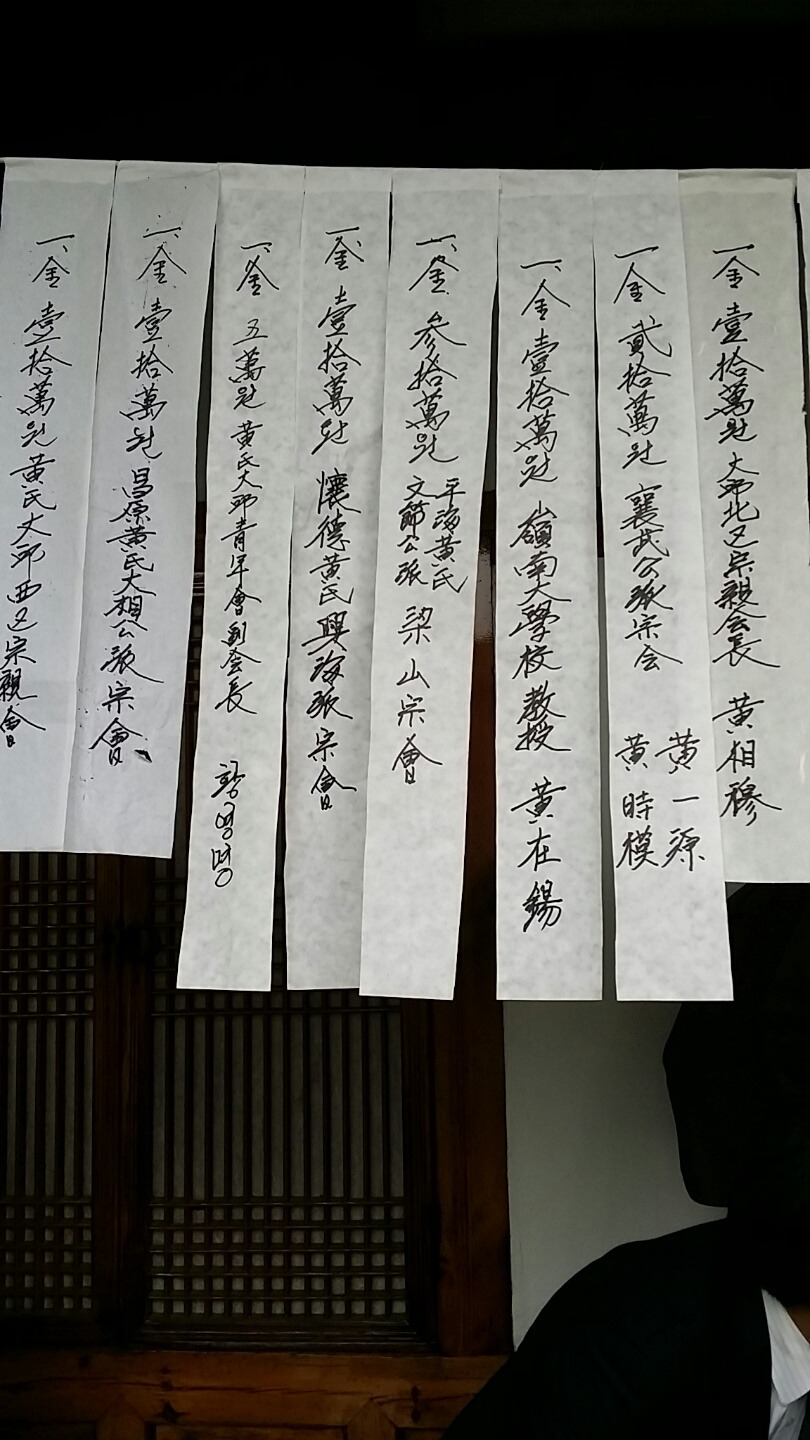 一金 壹拾萬원 大邱北区宗親会長 黄相穆
一金 貳拾萬원 襄武公派宗会 黄一源 黄時模
一、金 壹拾萬원 嶺南大學校 教授 黄在錫
一、金 参拾萬원 平海黄氏 文節公派 梁山宗會
一、金 壹拾萬원 懷德黄氏興海派宗會
一、金 五萬원 黄氏大邱青年會副会長 황영명
一、金 壹拾萬원 昌原黄氏大相公派宗會
一、金 壹拾萬원 黄氏大邱西区宗親會